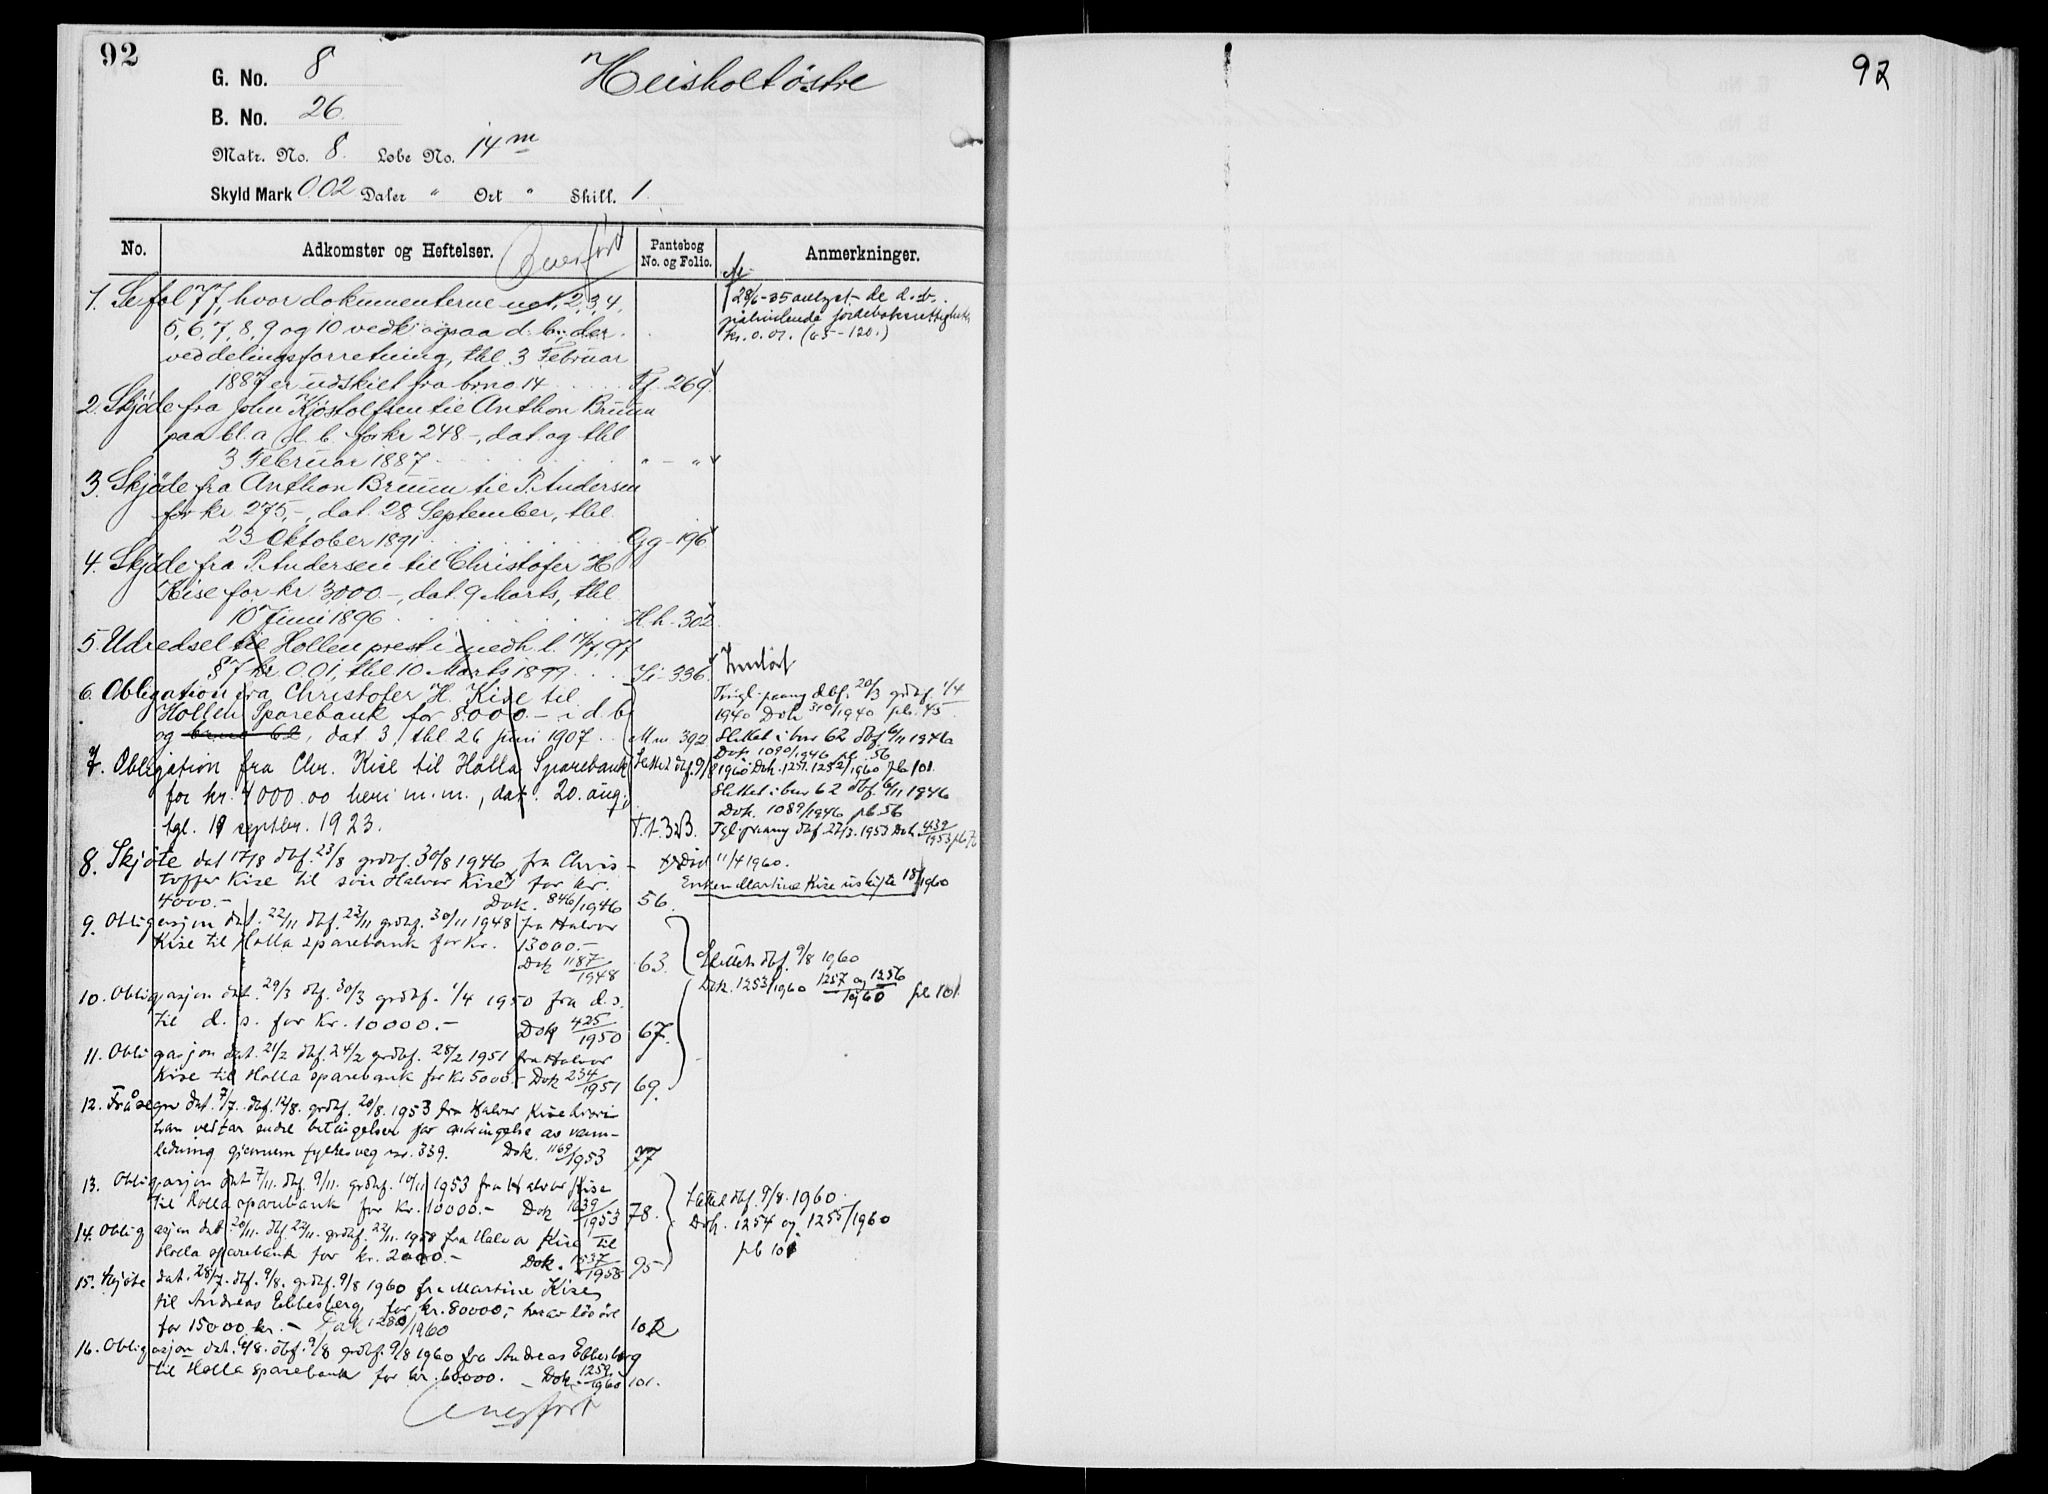 92
G. No. 8
Heisholt östre
B. No. 26.
Matr. No. 8. Løbe No. 14 m
Skyld Mark 0.02 Daler " Ort " Skill. 1.
No. Adkomster og Heftelser. Overført Pantebog No. og Folio. Anmerkninger.
1. Se fol 77, hvor dokumenterne 2, 3, 4,
5, 6, 7, 8, 9 og 10 vedk. ogsaa d. b., der
ved delingsforretning, thl. 3 Februar
1887 er udskilt fra brno 14 Ff. 269.
28/6-35 avlyst de d. b.
påhvilende jordebokrettighet
kr. 0.01. (65-120.)
2. Skjøde fra John Kjöstolfsen til Anthon Bruun
paa bl. a. d. b. for kr 248-, dat. og thl
3 Februar 1887 " - "
3. Skjøde fra Anthon Bruun til P. Andersen
for kr. 275,-, dat. 28 September, thl.
23 Oktober 1891 Gg - 196
4. Skjøde fra P. Andersen til Christofer H.
Kise for kr 3000.-, dat. 9 Marts, thl
10 Juni 1896 H.h - 302.
5. Udredsel til Hollen prest i medh. l. 14/7 97
§ 7 kr 0.01, thl 10 Marts 1899 Ii - 336. Innløst
6. Obligation fra Christofer H. Kise til
Hollen Sparebank for 8.000.- i d. b.
og brno 62, dat 3, thl 26 juni 1907 M.m. 392
dbf. 20/3 grdbf. 1/4
1940 Dok 310/1940 pb. 45
Slettet i bnr 62 dbf. 6/11 1946
Dok 1090/1946 pb. 56
7. Obligation fra Chr. Kise til Holla Sparebank
Slettet dbf. 9/8 1960 Dok. 1251. 1252/1960 pb 101.
for kr. 4000.00 heri m.m., dat. 20. aug.,
tgl. 19 septbr. 1923.
Slettet i bnr 62 dbf. 6/11 1946
Dok. 1089/1946 pb. 56
dbf 27/3. 1953 Dok. 439/1953 pb 76
8. Skjøte dat 17/8 dbf. 23/8 grdbf. 30/8 1946 fra Chris-
toffer Kise til sön Halvor Kise x) for kr.
4000.- Dok. 846/1946 56.
x) Död 11/4 1960.
Enken Martine Kise uskifte 1960
9. Obligasjon dat. 22/11 dbf. 23/11 grdbf. 30/11 1948 fra Halvor
Kise til Holla sparebank for kr. 13000.-
Dok 1187/1948 63.
Slettet dbf. 9/8 1960
Dok. 1253/1960 1257 og 1256/1960 pb 101.
10. Obligasjon dat. 29/3 dbf. 30/3 grdbf. 1/4 1950 fra d. s.
til d. s. for kr. 10000.- Dok 425/1950 67.
11. Obligasjon dat. 21/2 dbf. 24/2 grdbf. 28/2 1951 fra Halvor
Kise til Holla sparebank for kr 5000.- Dok 234/1951 69.
12. Fråsegn dat. 7/7. dbf. 12/8. grdbf. 20/8. 1953 fra Halvor Kise hvori
han vedtar endre betingelser for anbringelse av vann-
ledning gjennem fylkesveg nr. 339. Dok. 1169/1953 77
13. Obligasjon dat 7/11. dbf. 9/11. grdbf. 10/11 1953 fra Halvor Kise
til Holla sparebank for kr. 10000.- Dok 1639/1953 78.
Slettet dbf. 9/8. 1960.
Dok. 1254 og 1255/1960
pb 101
14. Obligasjon dat 20/11. dbf 22/11. grdbf. 22/11. 1958 fra Halvor Kise til
Holla sparebank for kr. 2000.- Dok. 1537/1958 95
15. Skjöte dat. 28/7. dbf. 9/8. grdbf. 9/8 1960 fra Martine Kise
til Andreas Ebbesberg for kr. 80000,- herav lösöre
for 15000 kr.- Dok 1280/1960 102
16. Obligasjon dat. 6/8. dbf. 9/8 grdbf. 9/8 1960 fra Andreas Ebbesberg
til Holla sparebank for kr. 60000. - Dok. 1259/1960 101.
Overført
92